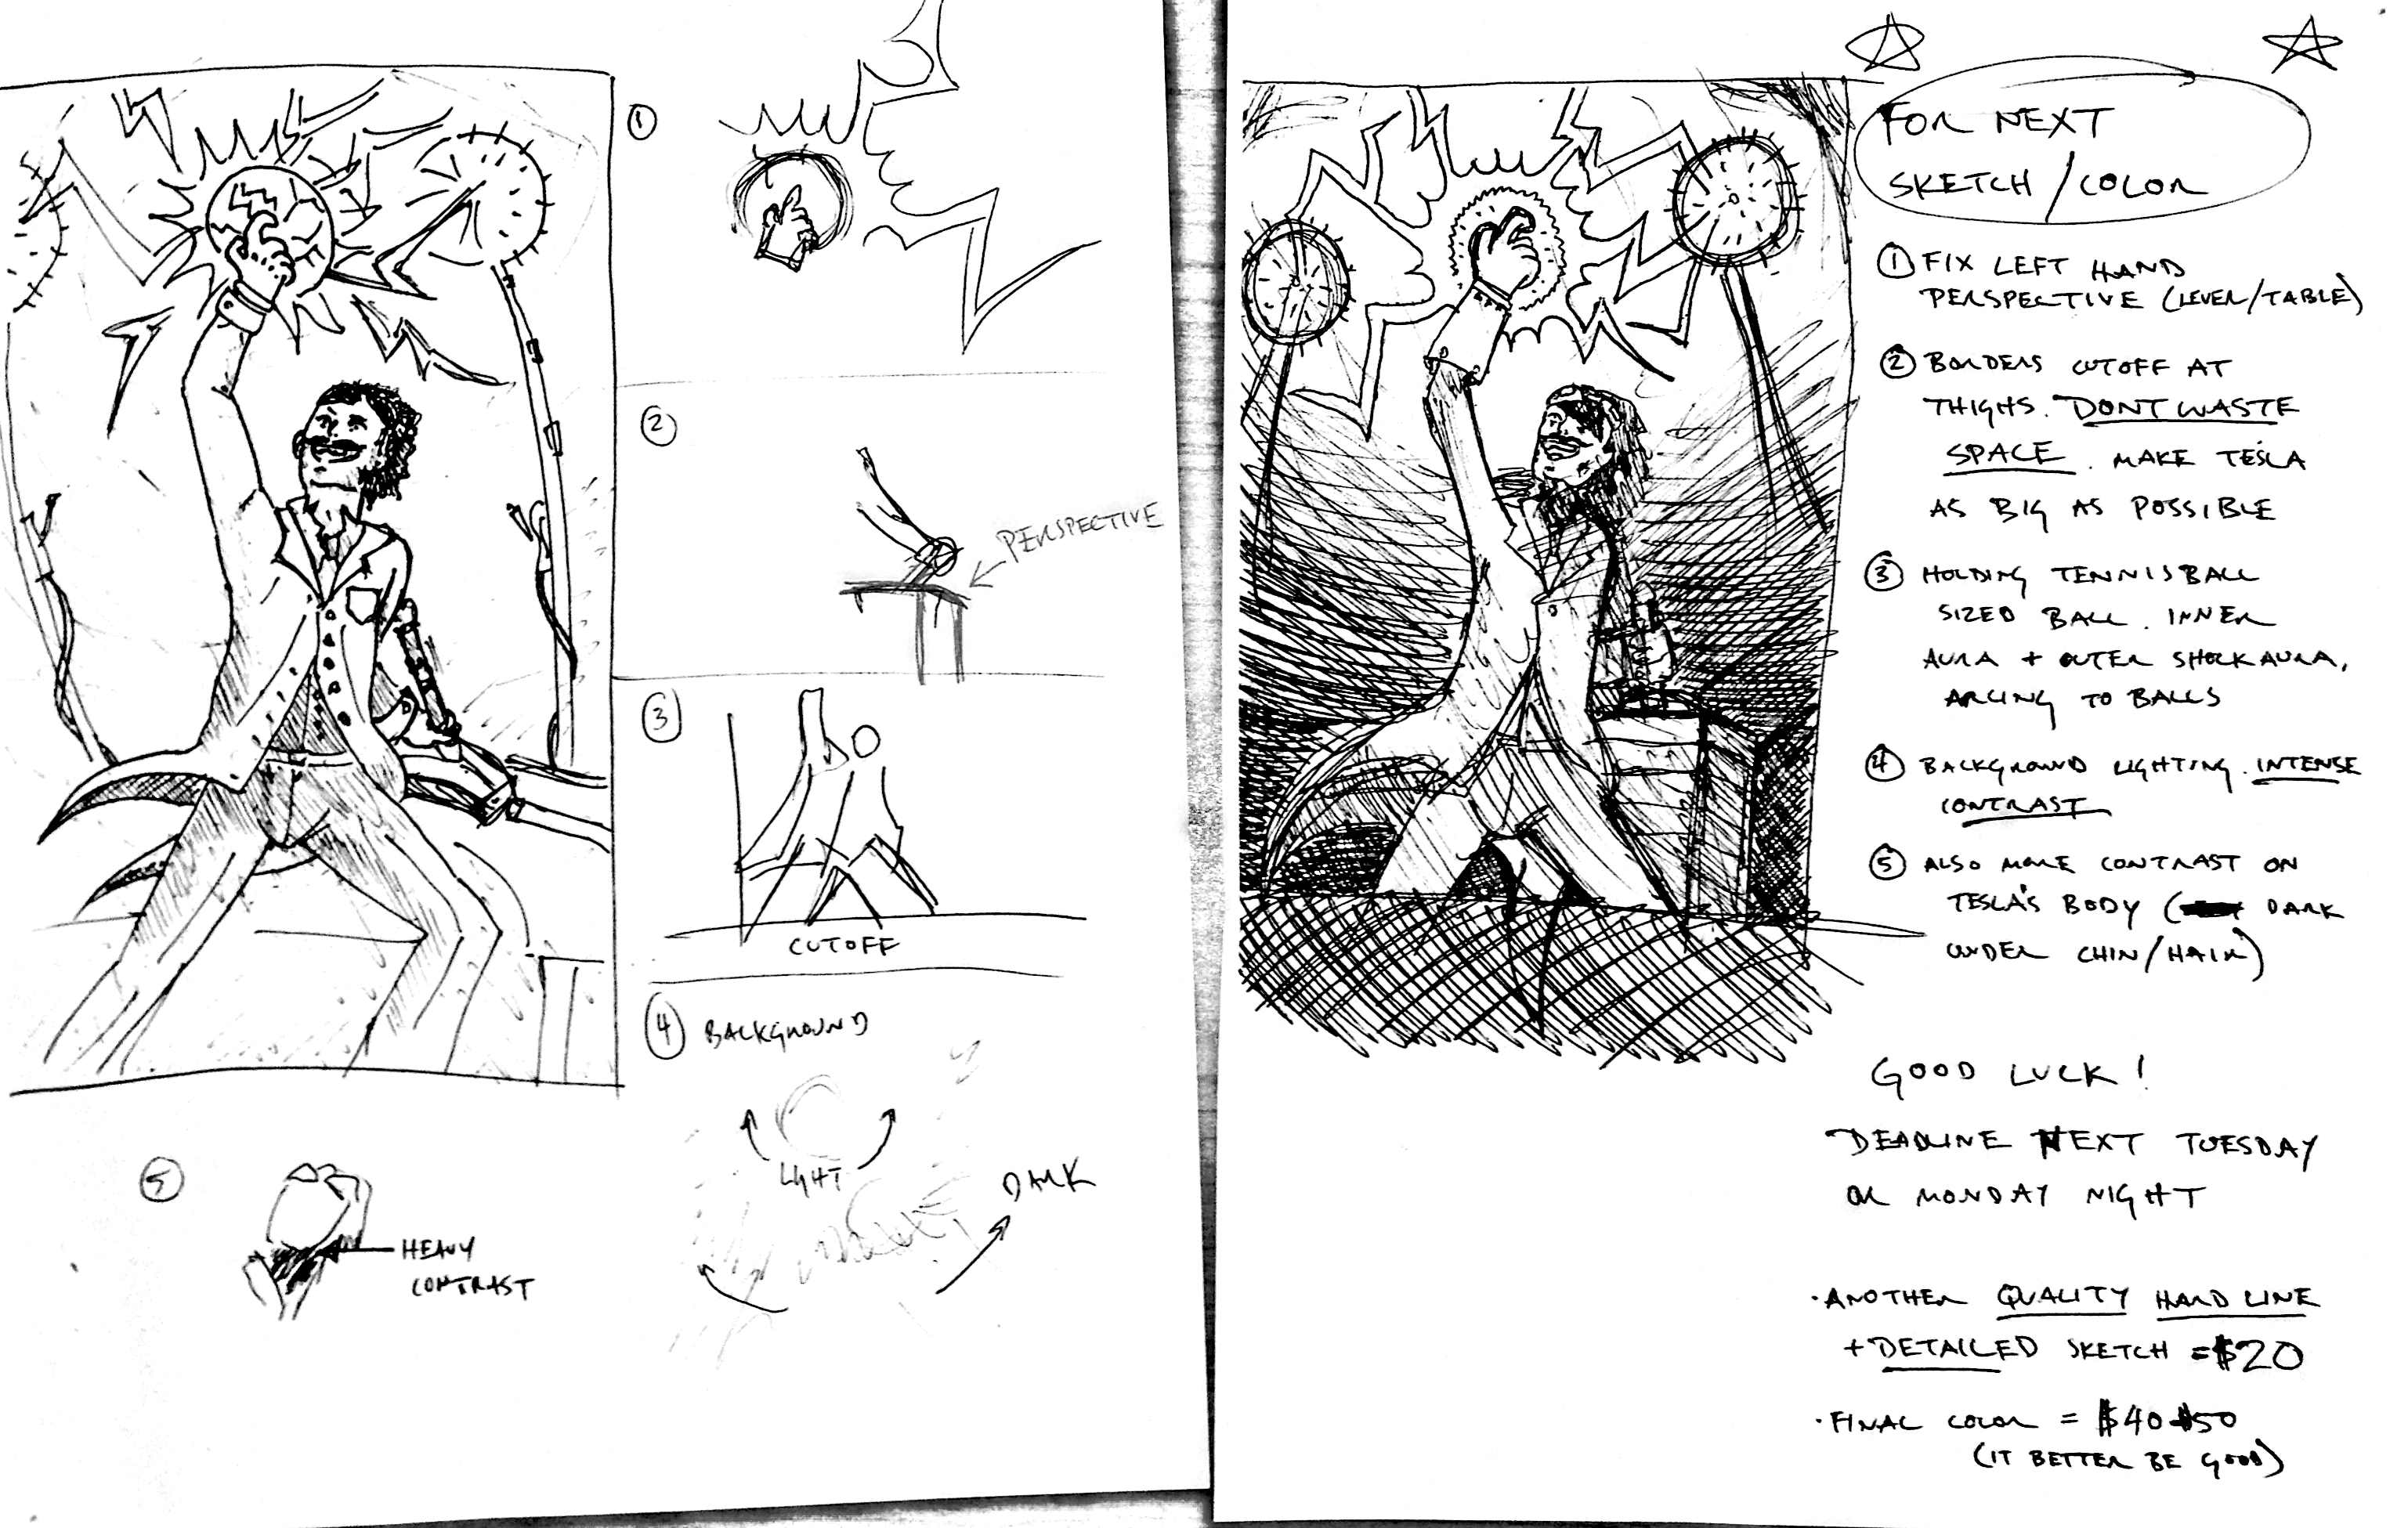 ①
②
PERSPECTIVE
③
CUTOFF
④ BACKGROUND
LIGHT
DARK
5
HEAVY
CONTRAST
FOR NEXT
SKETCH/COLOR
① FIX LEFT HAND
PERSPECTIVE (LEVER/TABLE)
② BORDERS CUTOFF AT
THIGHS. DONT WASTE
SPACE. MAKE TESLA
AS BIG AS POSSIBLE
③ HOLDING TENNISBALL
SIZED BALL. INNER
AURA + OUTER SHOCK AURA,
ARCING TO BALLS
④ BACKGROUND LIGHTING. INTENSE
CONTRAST
⑤ ALSO MORE CONTRAST ON
TESLA'S BODY (DARK
UNDER CHIN/HAIR)
GOOD LUCK!
DEADLINE NEXT TUESDAY
OR MONDAY NIGHT
·ANOTHER QUALITY HARD LINE
+ DETAILED SKETCH = $20
·FINAL COLOR = $40-$50
(IT BETTER BE GOOD)